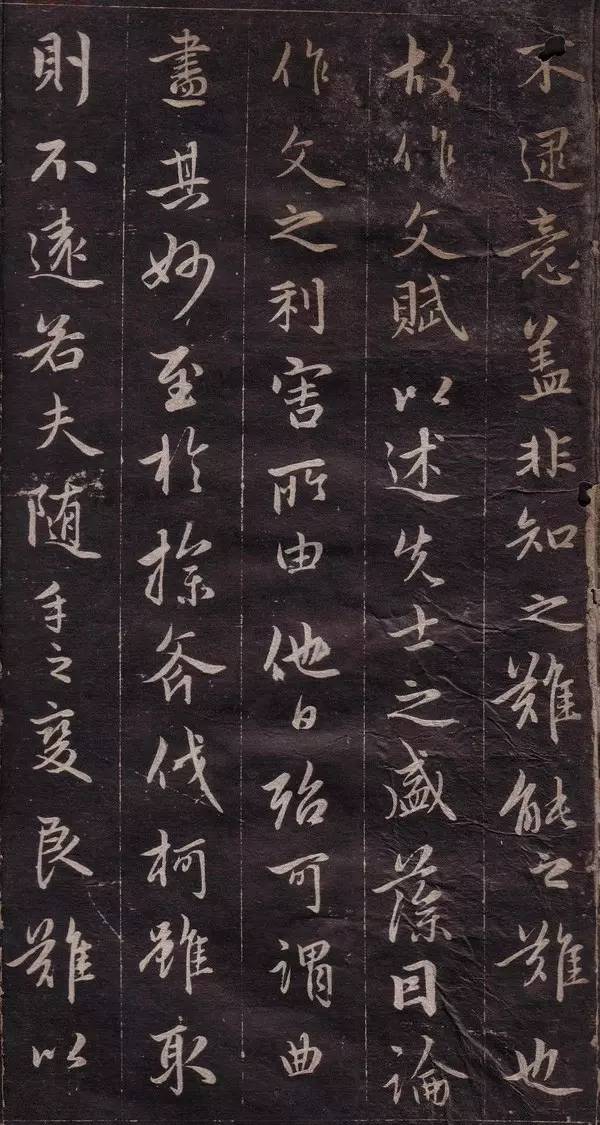 不逮意盖非知之難能之難也
故作文賦以述先士之盛藻因論
作文之利害所由他日殆可謂曲
盡其妙至於操斧伐柯雖取
則不遠若夫随手之變良難以